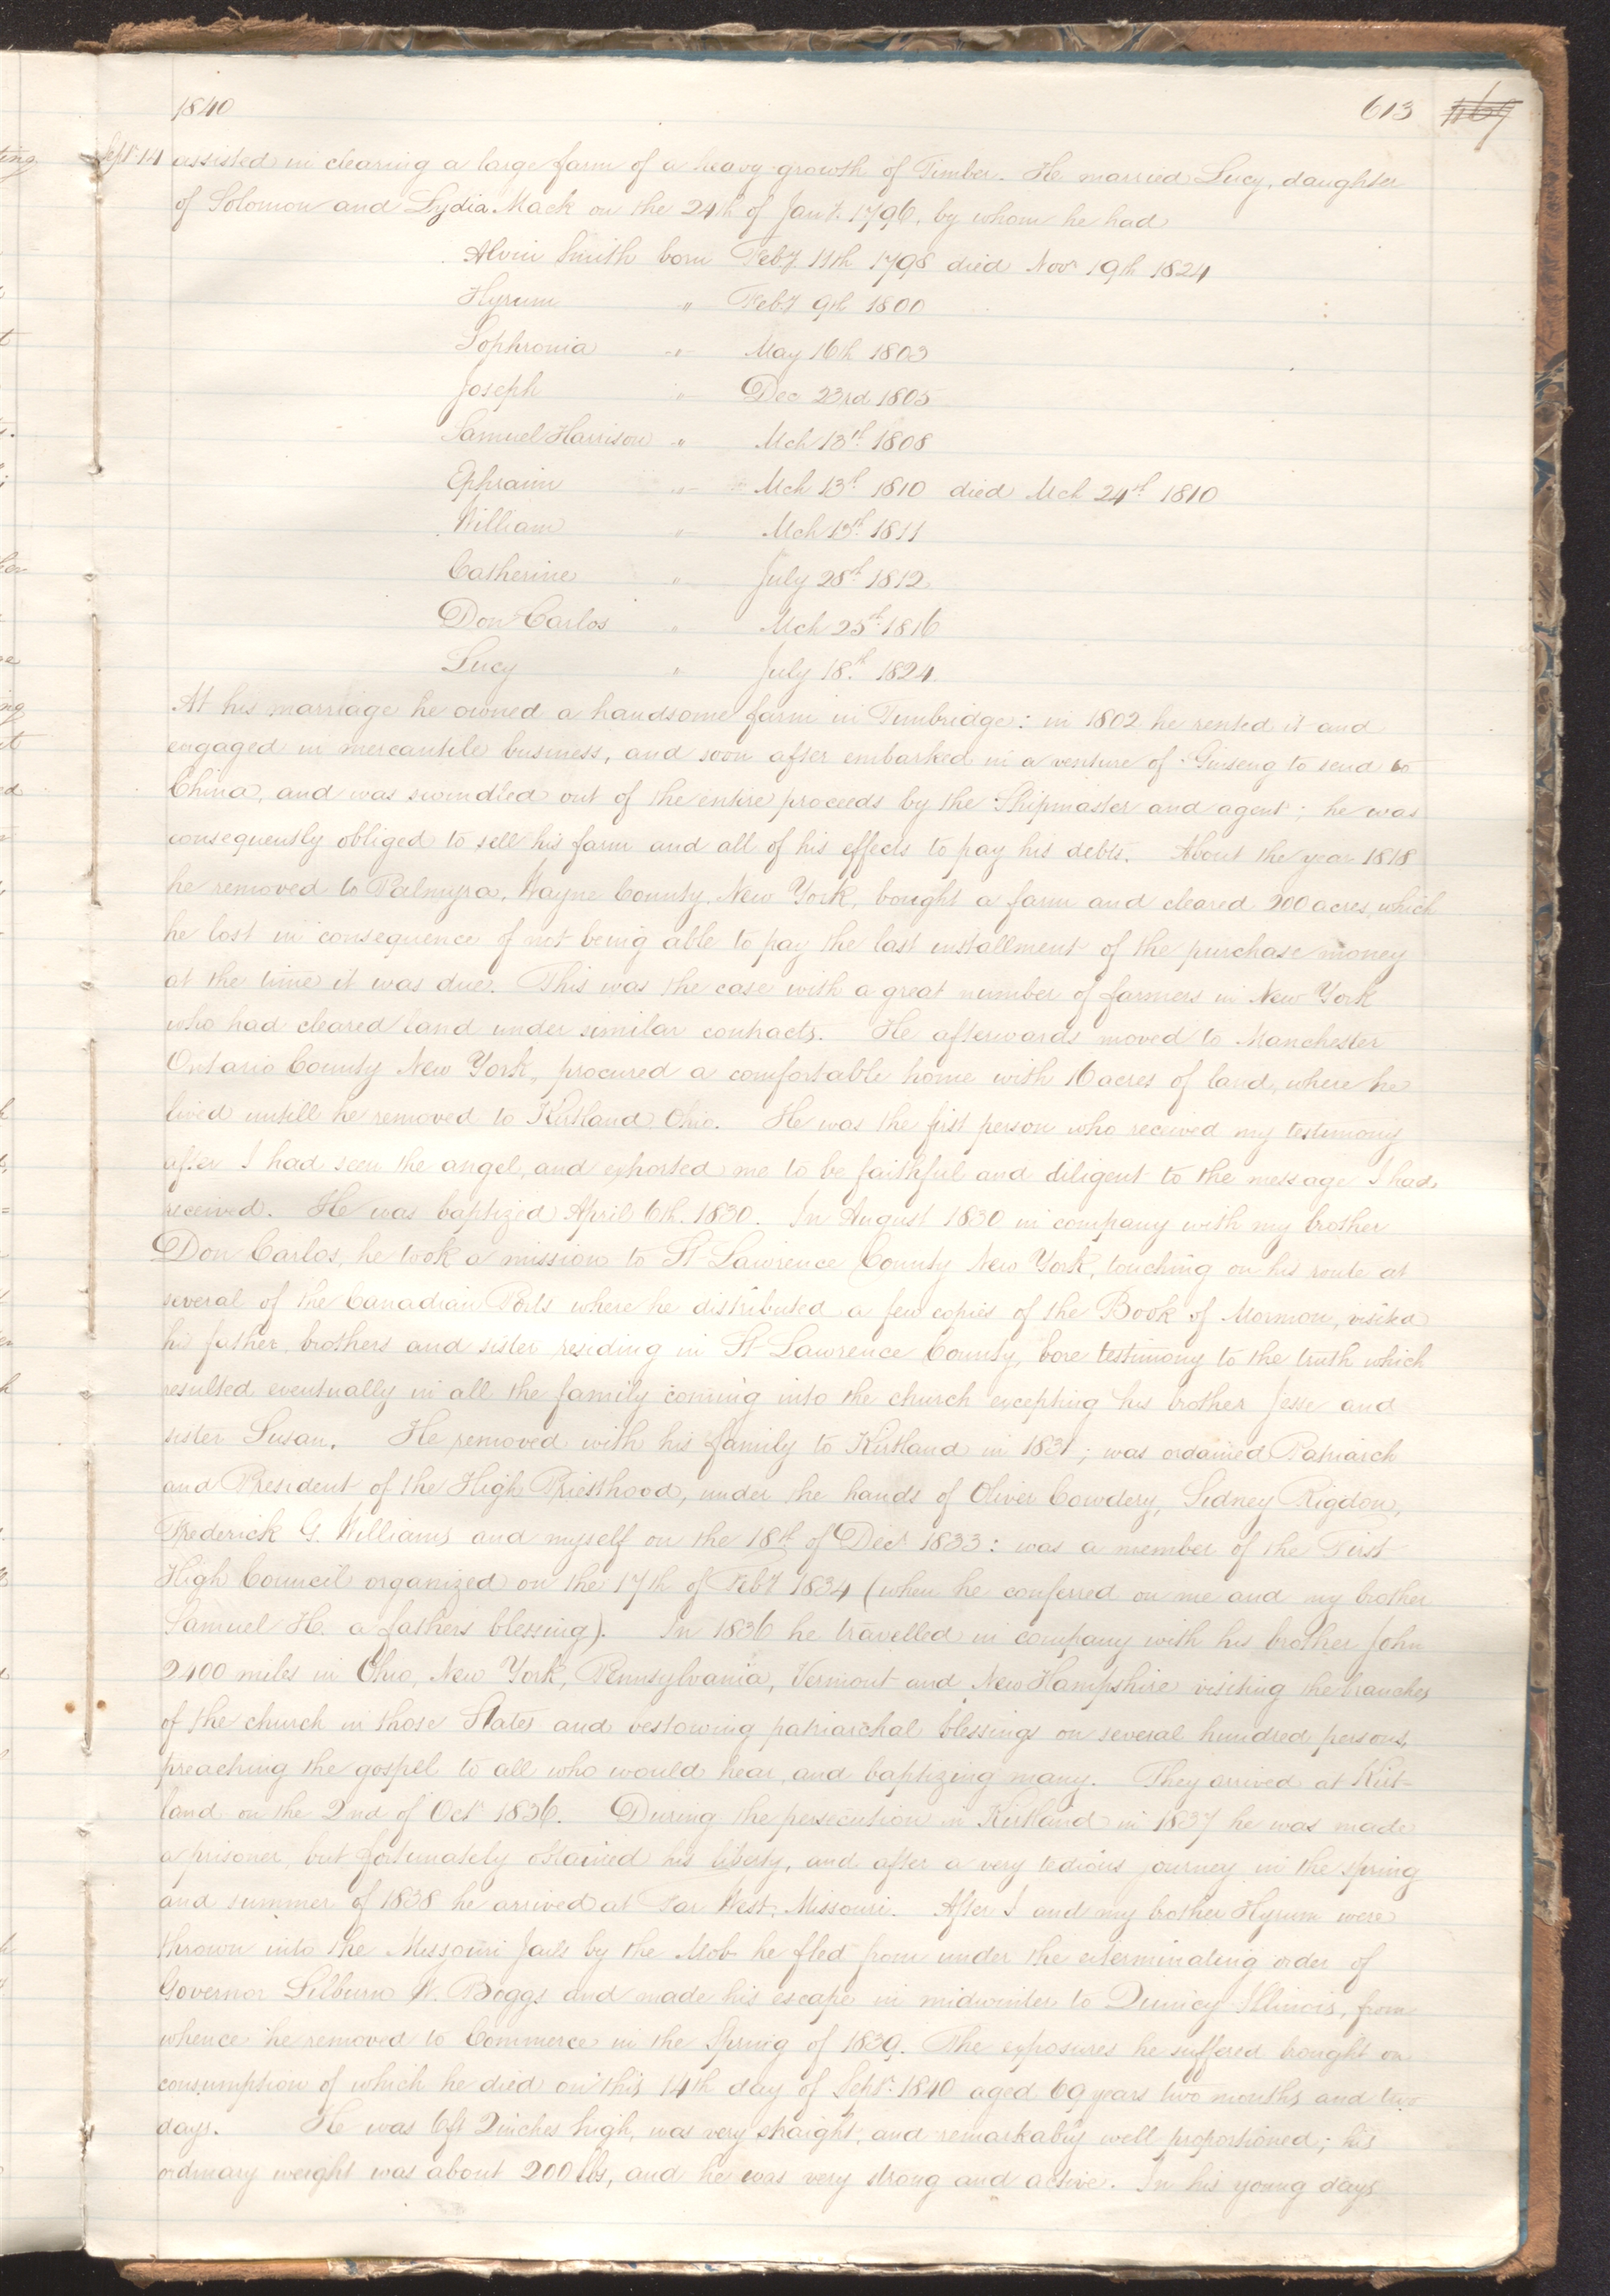 1840 613
Sept. 14 assisted in clearing a large farm of a heavy growth of Timber. He married Lucy, daughter
of Solomon and Lydia Mack on the 24th of Jany. 1796, by whom he had
Alvin Smith born Feby 11th 1798 died Novr 19th 1824
Hyrum " Feby 9th 1800
Sophronia " May 16th 1803
Joseph " Dec 23rd 1805
Samuel Harrison " Mch 13th 1808
Ephraim " Mch 13th 1810 died Mch 24th 1810
William " Mch 13th 1811
Catherine " July 28th 1812
Don Carlos " Mch 25th 1816
Lucy " July 18th 1824
At his marriage he owned a handsome farm in Tunbridge: in 1802 he rented it and
engaged in mercantile business, and soon after embarked in a venture of Ginseng to send to
China, and was swindled out of the entire proceeds by the Shipmaster and agent; he was
consequently obliged to sell his farm and all of his effects to pay his debts. About the year 1818
he removed to Palmyra, Wayne County, New York, bought a farm and cleared 200 acres, which
he lost in consequence of not being able to pay the last installment of the purchase money
at the time it was due. This was the case with a great number of farmers in New York
who had cleared land under similar contracts. He afterwards moved to Manchester
Ontario County New York, procured a comfortable home with 16 acres of land, where he
lived untill he removed to Kirtland Ohio. He was the first person who received my testimony
after I had seen the angel, and exhorted me to be faithful and diligent to the message I had
received. He was baptized April 6th. 1830. In August 1830 in company with my brother
Don Carlos, he took a mission to St Lawrence County New York, touching on his route at
several of the Canadian Ports where he distributed a few copies of the Book of Mormon, visited
his father, brothers and sister residing in St Lawrence County, bore testimony to the truth which
resulted eventually in all the family coming into the church excepting his brother Jesse and
sister Susan. He removed with his family to Kirtland in 1831; was ordained Patriarch
and President of the High Priesthood, under the hands of Oliver Cowdery, Sidney Rigdon,
Frederick G. Williams and myself on the 18th of Decr 1833: was a member of the First
High Council organized on the 17th of Feby 1834 (when he conferred on me and my brother
Samuel H. a fathers blessing). In 1836 he travelled in company with his brother John
2400 miles in Ohio, New York, Pennsylvania, Vermont and New Hampshire visiting the branches
of the church in those States and bestowing patriarchal blessings on several hundred persons,
preaching the gospel to all who would hear, and baptizing many. They arrived at Kirt-
land on the 2nd of Octr 1836. During the persecution in Kirtland in 1837 he was made
a prisoner, but fortunately obtained his liberty, and after a very tedious journey in the spring
and summer of 1838 he arrived at Far West, Missouri. After I and my brother Hyrum were
thrown into the Missouri Jails by the Mob he fled from under the exterminating order of
Governor Lilburn W. Boggs and made his escape in midwinter to Quincy Illinois, from
whence he removed to Commerce in the Spring of 1839. The exposures he suffered brought on
consumption of which he died on this 14th day of Septr. 1840 aged 69 years two months and two
days. He was 6ft 2inches high, was very straight, and remarkably well proportioned; his
ordinary weight was about 200 lbs, and he was very strong and active. In his young days